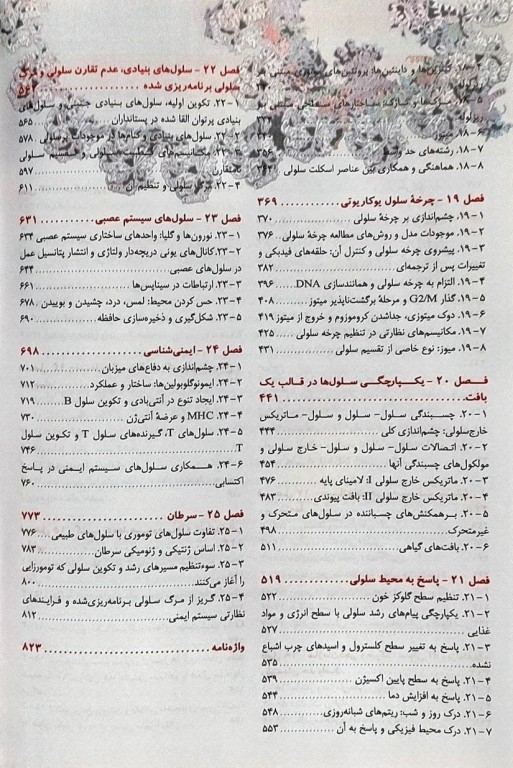 ۱۸-۳. کینزین‌ها و داینئین‌ها: پروتئین‌های
۱۸-۵. مژک‌ها و تاژک‌ها: ساختارهای سطحی
۱۸-۶. میوز
۱۸-۷. رشته‌های حد واسط ۳۵۶
۱۸-۸. هماهنگی و همکاری بین عناصر اسکلت سلولی
فصل ۱۹ - چرخهٔ سلول یوکاریوتی ۳۶۹
۱۹-۱. چشم‌اندازی بر چرخهٔ سلولی ۳۷۰
۱۹-۲. موجودات مدل و روش‌های مطالعه چرخهٔ سلولی ۳۷۶
۱۹-۳. پیشروی چرخه سلولی و کنترل آن: حلقه‌های فیدبکی و
تغییرات پس از ترجمه‌ای ۳۸۲
۱۹-۴. التزام به چرخه سلولی و همانندسازی DNA ۳۹۶
۱۹-۵. گذار G2/M و مرحلهٔ برگشت‌ناپذیر میتوز ۴۰۸
۱۹-۶. دوک میتوزی، جداشدن کروموزوم و خروج از میتوز ۴۱۹
۱۹-۷. مکانیسم‌های نظارتی در تنظیم چرخه سلولی ۴۲۵
۱۹-۸. میوز: نوع خاصی از تقسیم سلولی ۴۳۱
فصل ۲۰ - یکپارچگی سلول‌ها در قالب یک
بافت ۴۴۱
۲۰-۱. چسبندگی سلول- سلول و سلول- ماتریکس
خارج‌سلولی: چشم‌اندازی کلی ۴۴۴
۲۰-۲. اتصالات سلول- سلول و سلول- خارج سلولی و
مولکول‌های چسبندگی آنها ۴۵۴
۲۰-۳. ماتریکس خارج سلولی I: لامینای پایه ۴۷۶
۲۰-۴. ماتریکس خارج سلولی II: بافت پیوندی ۴۸۳
۲۰-۵. برهمکنش‌های چسباننده در سلول‌های متحرک و
غیرمتحرک ۴۹۸
۲۰-۶. بافت‌های گیاهی ۵۱۱
فصل ۲۱ - پاسخ به محیط سلولی ۵۱۹
۲۱-۱. تنظیم سطح گلوکز خون ۵۲۲
۲۱-۲. یکپارچگی پیام‌های رشد سلولی با سطح انرژی و مواد
غذایی ۵۲۷
۲۱-۳. پاسخ به تغییر سطح کلسترول و اسیدهای چرب اشباع
نشده ۵۳۵
۲۱-۴. پاسخ به سطح پایین اکسیژن ۵۳۹
۲۱-۵. پاسخ به افزایش دما ۵۴۴
۲۱-۶. درک روز و شب: ریتم‌های شبانه‌روزی ۵۴۸
۲۱-۷. درک محیط فیزیکی و پاسخ به آن ۵۵۳
فصل ۲۲ - سلول‌های بنیادی، عدم تقارن سلولی و مرگ
سلولی برنامه‌ریزی شده ۵۶۲
۲۲-۱. تکوین اولیه، سلول‌های بنیادی جنینی و سلول‌های
بنیادی پرتوان القا شده در پستانداران ۵۶۵
۲۲-۲. سلول‌های بنیادی و کنام‌ها در موجودات پرسلولی ۵۷۸
۲۲-۳. مکانیسم‌های قطبیت سلولی و تقسیم سلولی
نامتقارن ۵۹۷
۲۲-۴. مرگ سلولی و تنظیم آن ۶۱۱
فصل ۲۳ - سلول‌های سیستم عصبی ۶۳۱
۲۳-۱. نورون‌ها و گلیا: واحدهای ساختاری سیستم عصبی ۶۳۴
۲۳-۲. کانال‌های یونی دریچه‌دار ولتاژی و انتشار پتانسیل عمل
در سلول‌های عصبی ۶۴۴
۲۳-۳. ارتباطات در سیناپس‌ها ۶۶۱
۲۳-۴. حس کردن محیط: لمس، درد، چشیدن و بوییدن ۶۷۸
۲۳-۵. شکل‌گیری و ذخیره‌سازی حافظه ۶۹۰
فصل ۲۴ - ایمنی‌شناسی ۶۹۸
۲۴-۱. چشم‌اندازی به دفاع‌های میزبان ۷۰۱
۲۴-۲. ایمونوگلوبولین‌ها: ساختار و عملکرد ۷۱۲
۲۴-۳. ایجاد تنوع در آنتی‌بادی و تکوین سلول B ۷۱۹
۲۴-۴. MHC و عرضهٔ آنتی‌ژن ۷۳۰
۲۴-۵. سلول‌های T، گیرنده‌های سلول T و تکوین سلول
T ۷۴۶
۲۴-۶. همکاری سلول‌های سیستم ایمنی در پاسخ
اکتسابی ۷۶۰
فصل ۲۵ - سرطان ۷۷۳
۲۵-۱. تفاوت سلول‌های توموری با سلول‌های طبیعی ۷۷۶
۲۵-۲. اساس ژنتیکی و ژنومیکی سرطان ۷۸۳
۲۵-۳. سوءتنظیم مسیرهای رشد و تکوین سلولی که تومورزایی
را آغاز می‌کنند ۸۰۰
۲۵-۴. گریز از مرگ سلولی برنامه‌ریزی‌شده و فرایندهای
نظارتی سیستم ایمنی ۸۱۲
واژه‌نامه ۸۲۳